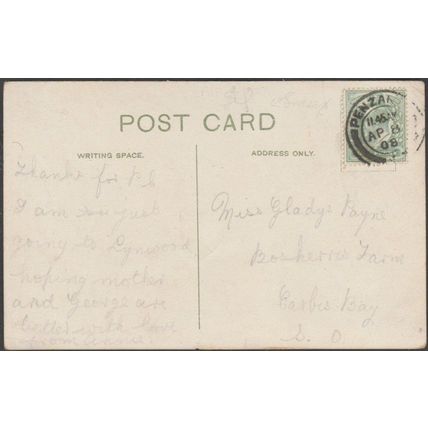 POST CARD
WRITING SPACE.
ADDRESS ONLY.
PENZAN
11.45AM
AP 8
08
Thanks for P.C
I am just
going to Lynwood
hoping mother
and George are
better with love
from Annie
Miss Gladys Payne
Farm
Carbis Bay
S. O